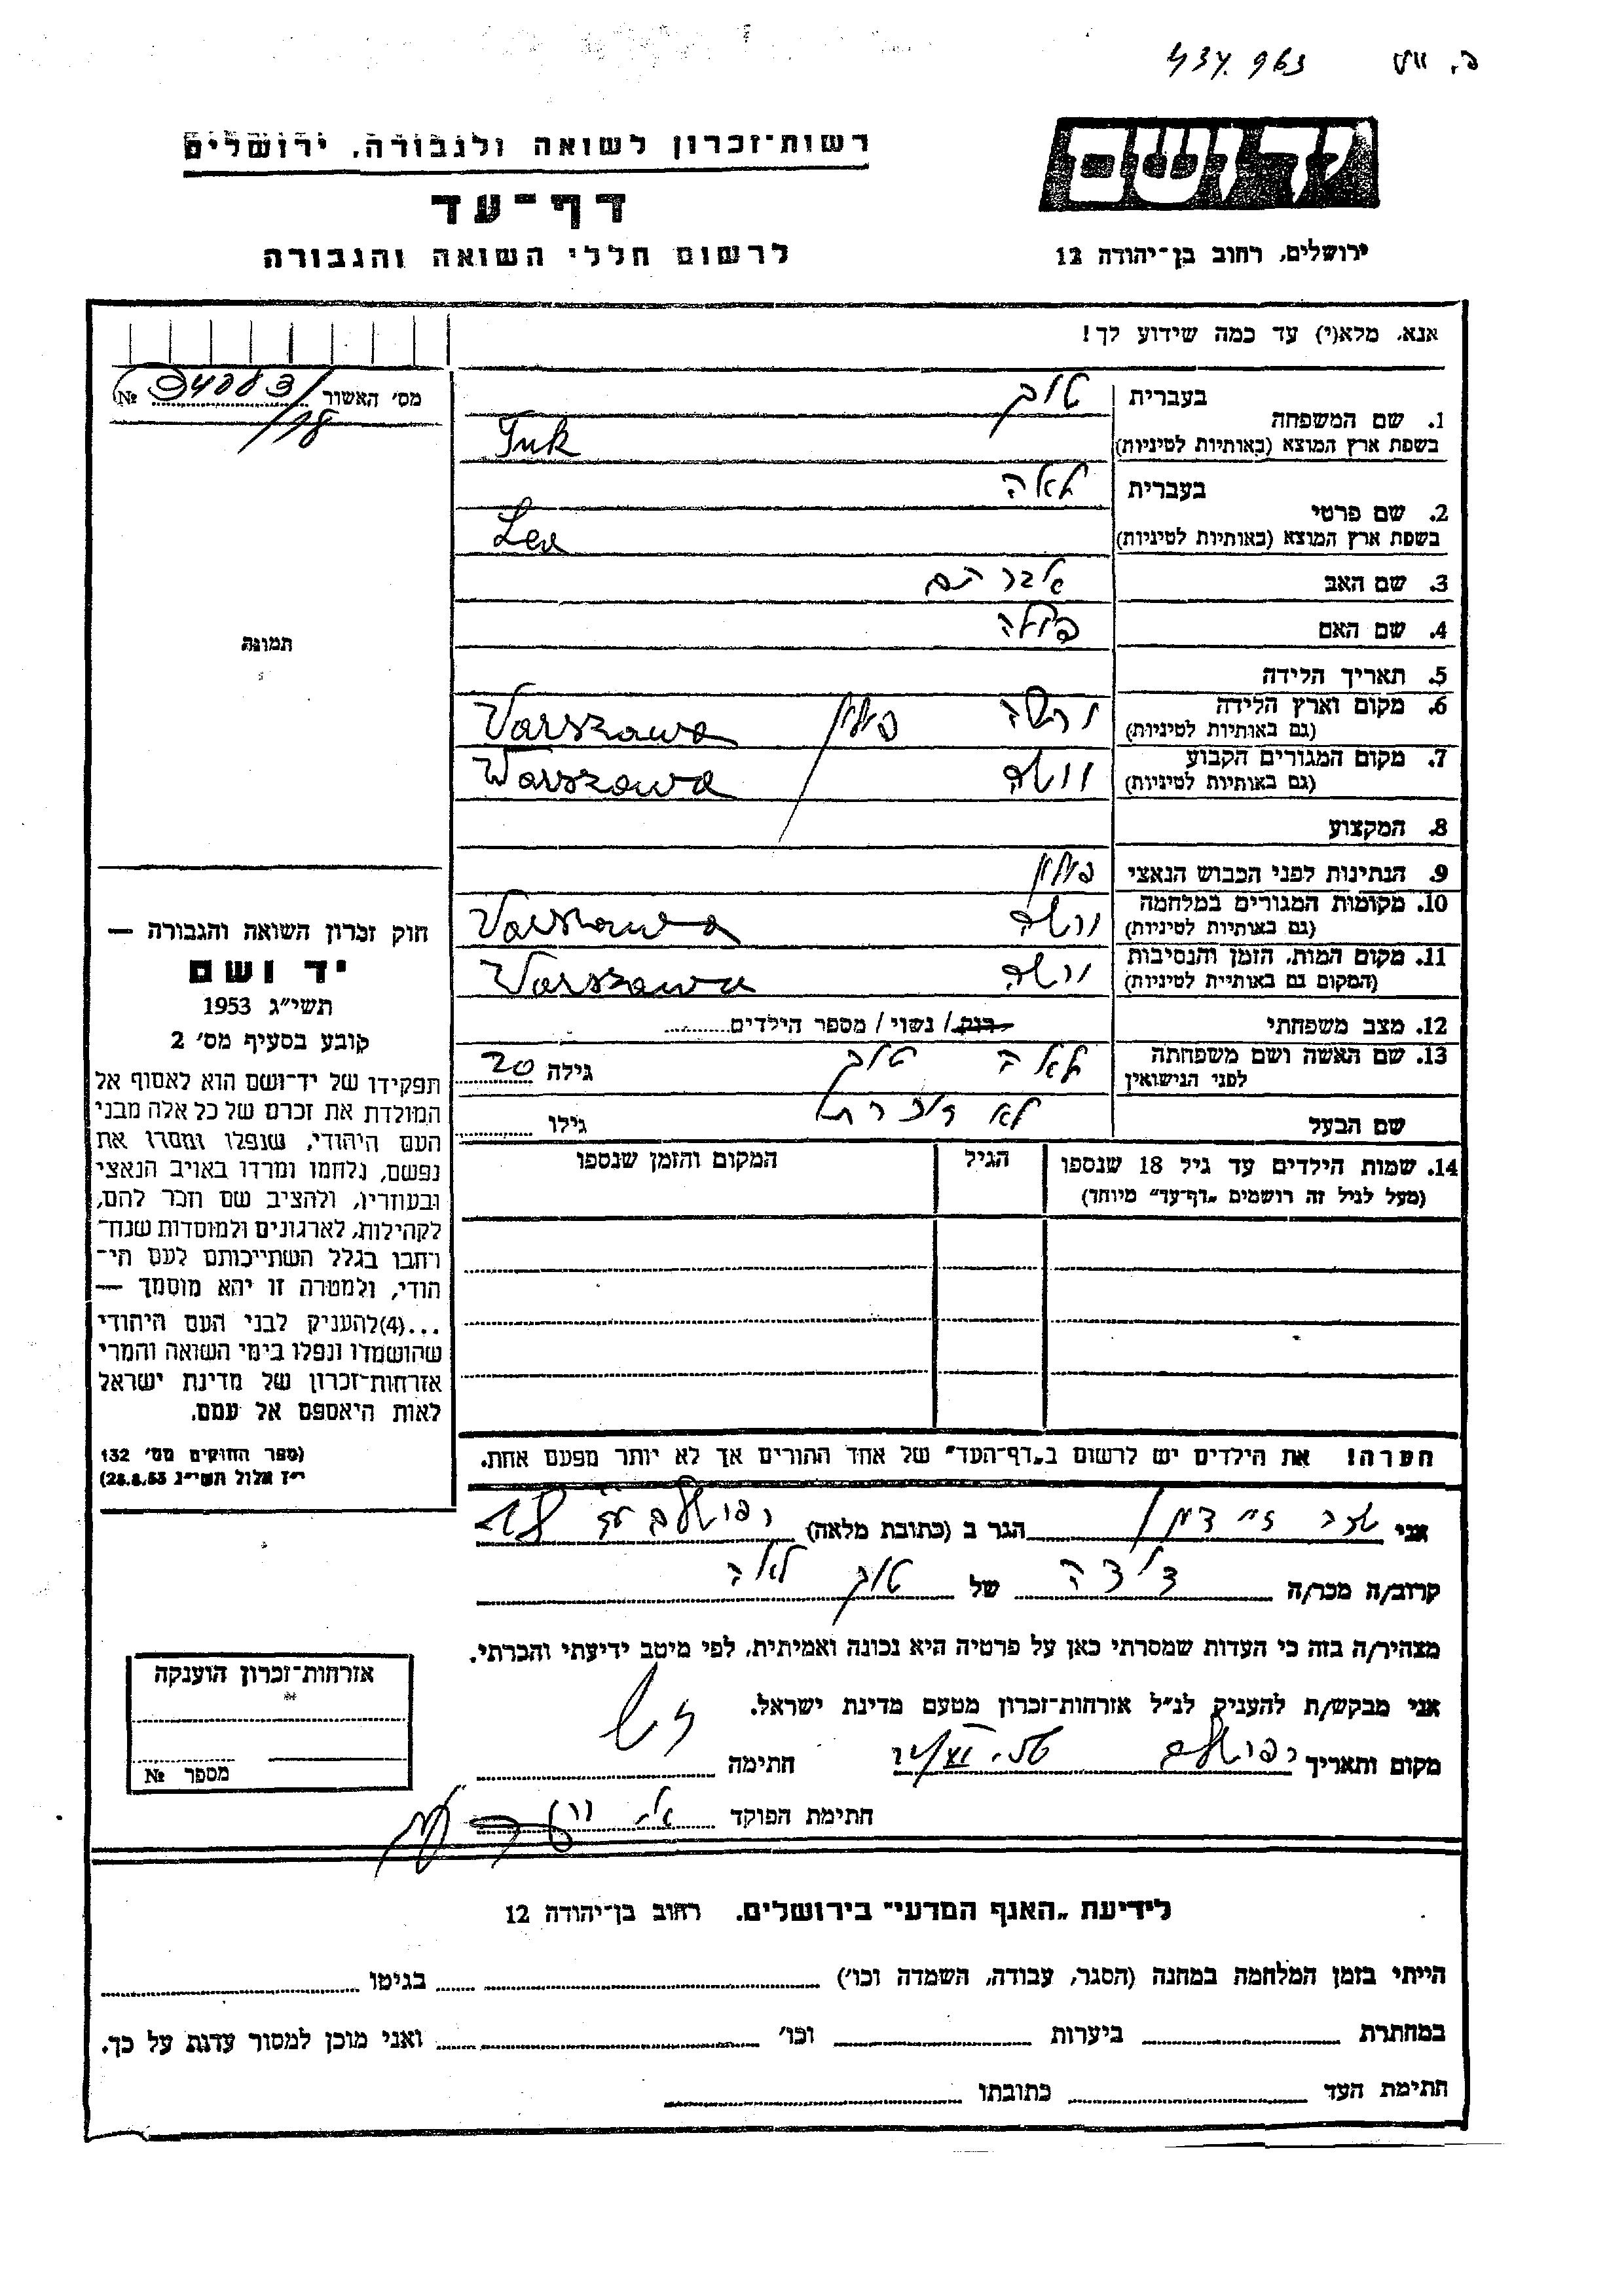 437.963
יד ושם
רשות־זכרון לשואה ולגבורה, ירושלים
דף־עד
לרשום חללי השואה והגבורה
ירושלים, רחוב בן־יהודה 12
אנא, מלא(י) עד כמה שידוע לך!
מס׳ האשור № 94083/18
תמונה
1. שם המשפחה
בעברית
בשפת ארץ המוצא (באותיות לטיניות) Tuk
2. שם פרטי
בעברית לאה
בשפת ארץ המוצא (באותיות לטיניות) Lea
3. שם האב אברהם
4. שם האם
5. תאריך הלידה
6. מקום וארץ הלידה ורשה פולין Varszawa
(גם באותיות לטיניות)
7. מקום המגורים הקבוע ורשה Warszawa
(גם באותיות לטיניות)
8. המקצוע
9. הנתינות לפני הכבוש הנאצי פולין
10. מקומות המגורים במלחמה ורשה Varszawa
(גם באותיות לטיניות)
11. מקום המות, הזמן והנסיבות ורשה Varszawa
(המקום גם באותיית לטיניות)
12. מצב משפחתי רוק / נשוי / מספר הילדים
13. שם האשה ושם משפחתה לאה גילה 20
לפני הנישואין
שם הבעל לא גילו
14. שמות הילדים עד גיל 18 שנספו הגיל המקום והזמן שנספו
(מעל לגיל זה רושמים „דף־עד" מיוחד)
הערה! את הילדים יש לרשום ב„דף־העד" של אחד ההורים אך לא יותר מפעם אחת.
חוק זכרון השואה והגבורה —
יד ושם
תשי״ג 1953
קובע בסעיף מס׳ 2
תפקידו של יד־ושם הוא לאסוף אל
המולדת את זכרם של כל אלה מבני
העם היהודי, שנפלו ומסרו את
נפשם, נלחמו ומרדו באויב הנאצי
ובעוזריו, ולהציב שם וזכר להם,
לקהילות, לארגונים ולמוסדות שנח־
רחבו בגלל השתייכותם לעם הי־
הודי, ולמטרה זו יהא מוסמך —
...(4)להעניק לבני העם היהודי
שהושמדו ונפלו בימי השואה והמרי
אזרחות־זכרון של מדינת ישראל
לאות היאספם אל עמם.
(ספר החוקים מס׳ 132
י״ז אלול תשי״ג 28.8.53)
אני הגר ב (כתובת מלאה) ירושלים 18
קרוב/ה מכר/ה דודה של לאה
מצהיר/ה בזה כי העדות שמסרתי כאן על פרטיה היא נכונה ואמיתית, לפי מיטב ידיעתי והכרתי.
אני מבקש/ת להעניק לנ״ל אזרחות־זכרון מטעם מדינת ישראל.
מקום ותאריך ירושלים חתימה
חתימת הפוקד
אזרחות־זכרון הוענקה
מספר №
לידיעת „האגף המדעי" בירושלים, רחוב בן־יהודה 12
הייתי בזמן המלחמה במחנה (הסגר, עבודה, השמדה וכו׳) בגיטו
במחתרת ביערות וכו׳ ואני מוכן למסור עדות על כך.
חתימת העד כתובתו